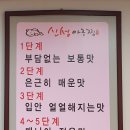 신생아구찜
1단계
부담없는 보통맛
2단계
은근히 매운맛
3단계
입안 얼얼해지는맛
4~5단계